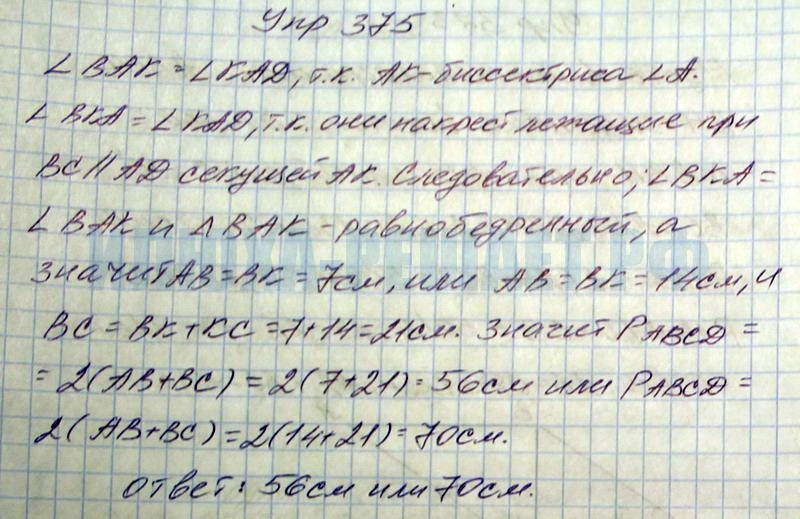 Упр 375
∠ BAK = ∠KAD, т.к. AK-биссектриса ∠A.
∠ BKA = ∠ KAD, т.к. они накрест лежащие при
BC // AD секущей AK. Следовательно; ∠BKA =
∠ BAK и Δ BAK - равнобедренный, а
значит AB = BK = 7см, или AB = BK = 14см, и
BC = BK + KC = 7+14 = 21см. Значит P ABCD =
= 2(AB+BC) = 2(7+21) = 56см или P ABCD =
2(AB+BC) = 2(14+21) = 70см.
Ответ: 56см или 70см.